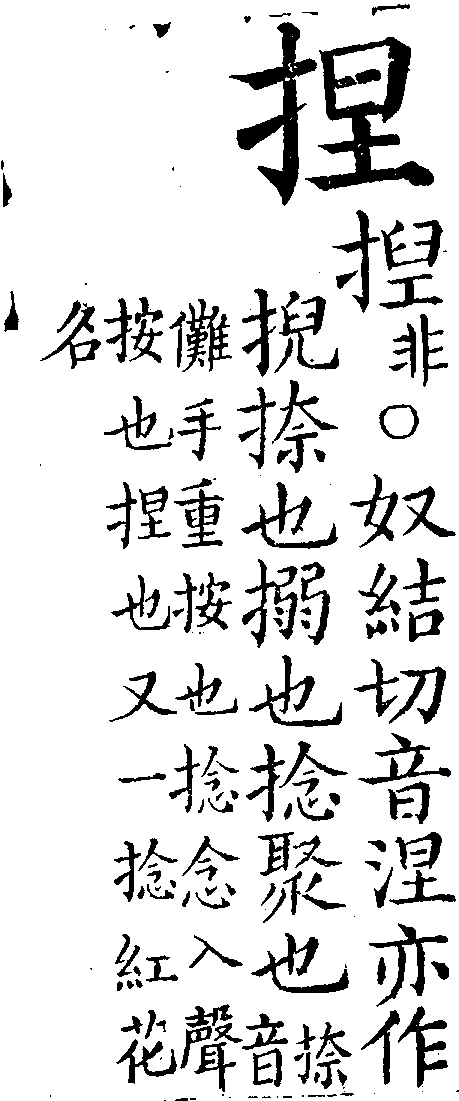 捏
揑非○奴結切音涅亦作
掜捺也搦也捻聚也捺
音
儺手重按也捻念入聲
按也捏也又一捻紅花
名